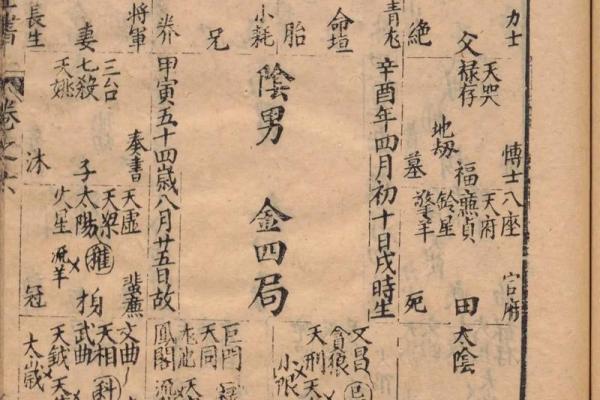 力士
博士
官府
天哭
祿存
父
絕
八座
天府
廉貞
福
地刼
鈴星
擎羊
墓
太陰
田
死
青龙
辛酉年四月初十日戌時生
命垣
胎
小耗
陰男 金四局
兄
養
甲寅五十四歲八月廿五日故
將軍
奏書
蜚廉
妻
長生
三台
七殺
天姚
沐
子
天虛
天梁
太陽
火星
權
流羊
冠
文昌
貪狼
天刑
小限
巨門
天同
鳳閣
文曲
天相
武曲
天鉞
科
太歲
卷之六